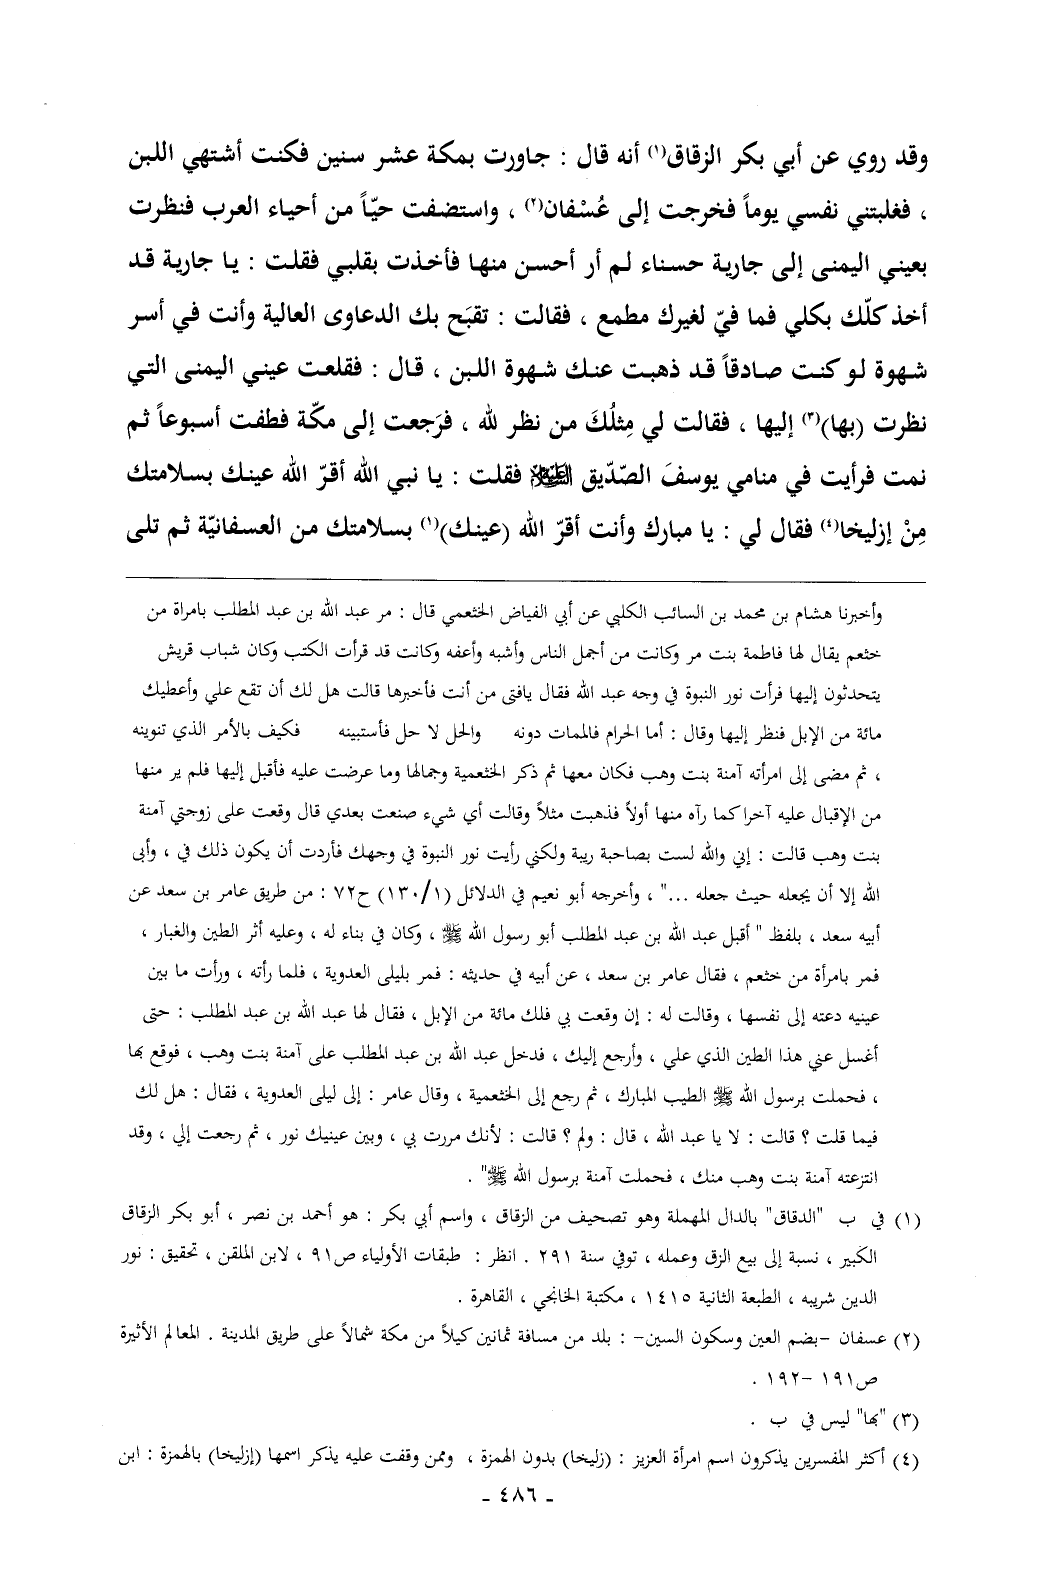 وقد روي عن أبي بكر الزقاق(١) أنه قال : جاورت بمكة عشر سنين فكنت أشتهي اللبن
، فغلبتني نفسي يوماً فخرجت إلى عُسْفان(٢) ، واستضفت حيّاً من أحياء العرب فنظرت
بعيني اليمنى إلى جارية حسناء لم أر أحسن منها فأخذت بقلبي فقلت : يا جارية قد
أخذ كلّك بكلي فما فيّ لغيرك مطمع ، فقالت : تقبَح بك الدعاوى العالية وأنت في أسر
شهوة لو كنت صادقاً قد ذهبت عنك شهوة اللبن ، قال : فقلعت عيني اليمنى التي
نظرت (بها)(٣) إليها ، فقالت لي مِثلُكَ من نظر لله ، فرَجعت إلى مكّة فطفت أسبوعاً ثم
نمت فرأيت في منامي يوسفَ الصّدّيق عليه السلام فقلت : يا نبي الله أقرّ الله عينك بسلامتك
مِنْ إزليخا(٤) فقال لي : يا مبارك وأنت أقرّ الله (عينك)(١) بسلامتك من العسفانيّة ثم تلى
وأخبرنا هشام بن محمد بن السائب الكلبي عن أبي الفياض الخثعمي قال : مر عبد الله بن عبد المطلب بامراة من
خثعم يقال لها فاطمة بنت مر وكانت من أجمل الناس وأشبه وأعفه وكانت قد قرأت الكتب وكان شباب قريش
يتحدثون إليها فرأت نور النبوة في وجه عبد الله فقال يافتى من أنت فأخبرها قالت هل لك أن تقع علي وأعطيك
مائة من الإبل فنظر إليها وقال : أما الحرام فالممات دونه والحل لا حل فأستبينه فكيف بالأمر الذي تنوينه
، ثم مضى إلى امرأته آمنة بنت وهب فكان معها ثم ذكر الخثعمية وجمالها وما عرضت عليه فأقبل إليها فلم ير منها
من الإقبال عليه آخرا كما رآه منها أولاً فذهبت مثلاً وقالت أي شيء صنعت بعدي قال وقعت على زوجتي آمنة
بنت وهب قالت : إني والله لست بصاحبة ريبة ولكني رأيت نور النبوة في وجهك فأردت أن يكون ذلك في ، وأبى
الله إلا أن يجعله حيث جعله ..." ، وأخرجه أبو نعيم في الدلائل (١٣٠/١) ح٧٢ : من طريق عامر بن سعد عن
أبيه سعد ، بلفظ " أقبل عبد الله بن عبد المطلب أبو رسول الله ﷺ ، وكان في بناء له ، وعليه أثر الطين والغبار ،
فمر بامرأة من خثعم ، فقال عامر بن سعد ، عن أبيه في حديثه : فمر بليلى العدوية ، فلما رأته ، ورأت ما بين
عينيه دعته إلى نفسها ، وقالت له : إن وقعت بي فلك مائة من الإبل ، فقال لها عبد الله بن عبد المطلب : حتى
أغسل عني هذا الطين الذي علي ، وأرجع إليك ، فدخل عبد الله بن عبد المطلب على آمنة بنت وهب ، فوقع بها
، فحملت برسول الله ﷺ الطيب المبارك ، ثم رجع إلى الخثعمية ، وقال عامر : إلى ليلى العدوية ، فقال : هل لك
فيما قلت ؟ قالت : لا يا عبد الله ، قال : ولم ؟ قالت : لأنك مررت بي ، وبين عينيك نور ، ثم رجعت إلي ، وقد
انتزعته آمنة بنت وهب منك ، فحملت آمنة برسول الله ﷺ" .
(١) في ب "الدقاق" بالدال المهملة وهو تصحيف من الزقاق ، واسم أبي بكر : هو أحمد بن نصر ، أبو بكر الزقاق
الكبير ، نسبة إلى بيع الزق وعمله ، توفي سنة ٢٩١ . انظر : طبقات الأولياء ص٩١ ، لابن الملقن ، تحقيق : نور
الدين شريبه ، الطبعة الثانية ١٤١٥ ، مكتبة الخانجي ، القاهرة .
(٢) عسفان -بضم العين وسكون السين- : بلد من مسافة ثمانين كيلاً من مكة شمالاً على طريق المدينة . المعالم الأثيرة
ص١٩١ -١٩٢ .
(٣) "بها" ليس في ب .
(٤) أكثر المفسرين يذكرون اسم امرأة العزيز : (زليخا) بدون الهمزة ، وممن وقفت عليه يذكر اسمها (إزليخا) بالهمزة : ابن
- ٤٨٦ -